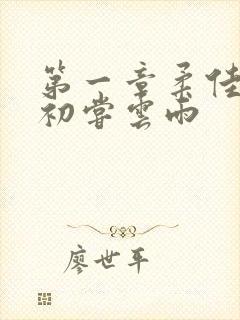 第一章柔佳
初尝雲雨
廖世平